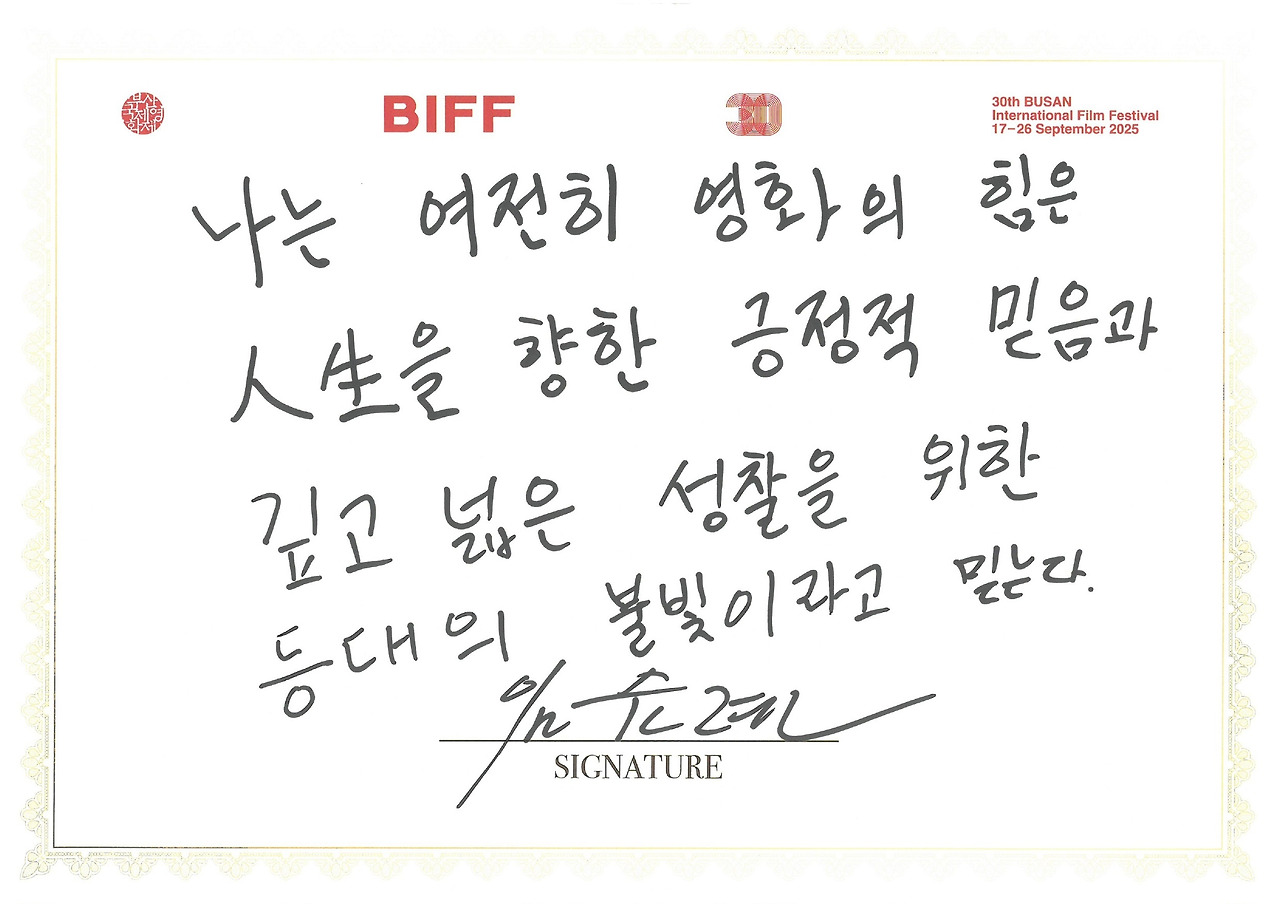 부산국제영화제
BIFF
30
30th BUSAN
International Film Festival
17–26 September 2025
나는 여전히 영화의 힘은
人生을 향한 긍정적 믿음과
깊고 넓은 성찰을 위한
등대의 불빛이라고 믿는다.
임순례
SIGNATURE